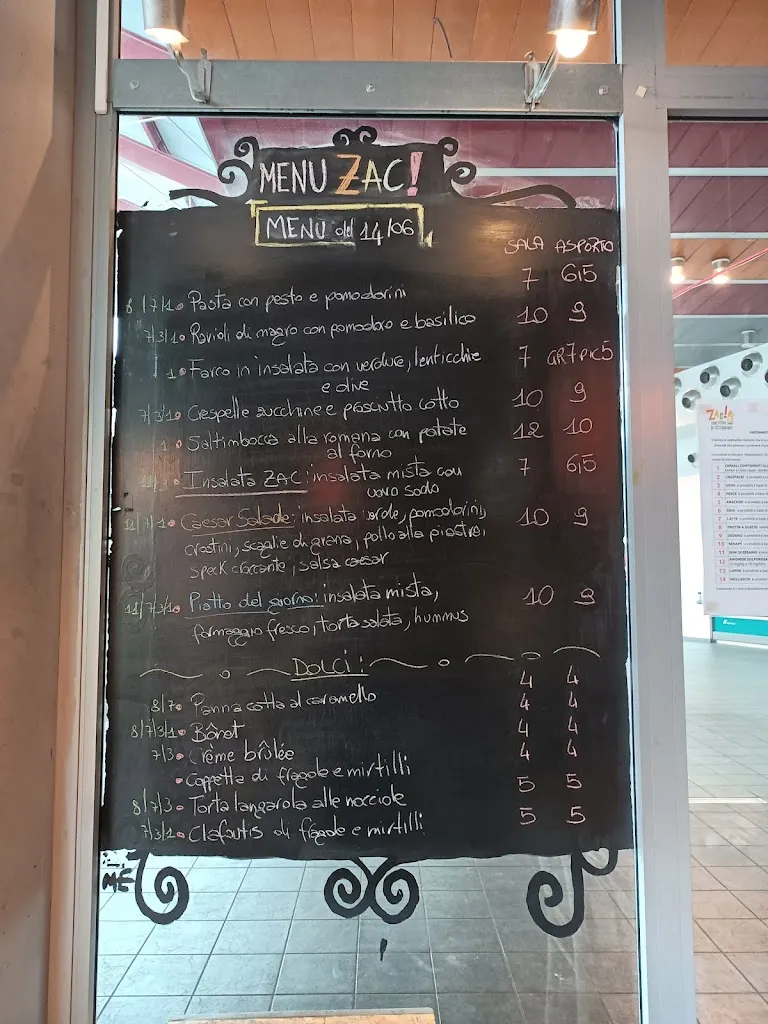 MENU ZAC!
MENU del 14/06
SALA ASPORTO
8/7/1 Pasta con pesto e pomodorini 7 6,5
7/3/1 Ravioli di magro con pomodoro e basilico 10 9
1 Farro in insalata con verdure, lenticchie 7 GR7 PIC5
e olive
7/3/1 Crespelle zucchine e prosciutto cotto 10 9
1 Saltimbocca alla romana con patate 12 10
al forno
Insalata ZAC: insalata mista con 7 6,5
uovo sodo
11/7/1 Caesar Salade: insalata verde, pomodorini, 10 9
crostini, scaglie di grana, pollo alla piastra,
speck croccante, salsa caesar
11/7/3/1 Piatto del giorno: insalata mista, 10 9
formaggio fresco, torta salata, hummus
DOLCI:
8/7 Panna cotta al caramello 4 4
8/7/3/1 Bônet 4 4
7/3 Crème brûlée 4 4
Coppetta di fragole e mirtilli 4 4
8/7/3 Torta langarola alle nocciole 5 5
7/3/1 Clafoutis di fragole e mirtilli 5 5
MÉ
ZAC!